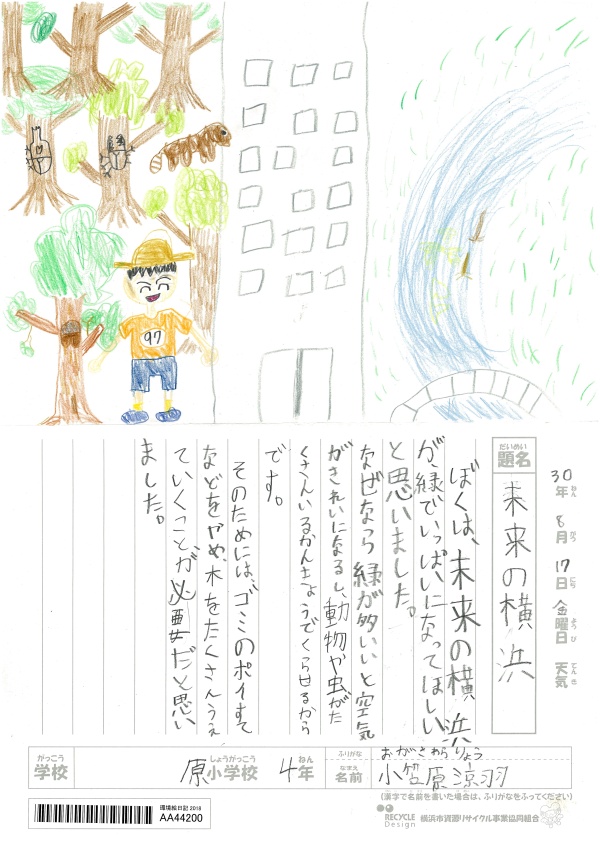 97
30年 8月 17日 金曜日 天気
ねん がつ にち ようび てんき
だいめい
題名
未来の横浜
ぼくは、未来の横浜
が、緑でいっぱいになってほしい
と思いました。
なぜなら緑が多いいと空気
がきれいになるし、動物や虫がた
くさんいるかんきょうでくらせるから
です。
そのためには、ゴミのポイすて
などをやめ、木をたくさんうえ
ていくことが必要だと思い
ました。
がっこう
学校
原小学校
しょうがっこう
4年
ねん
ふりがな
おがさわらりょう
なまえ
名前
小笠原涼羽
(漢字で名前を書いた場合は、ふりがなをふってください)
環境絵日記 2018
AA44200
RECYCLE Design
横浜市資源リサイクル事業協同組合